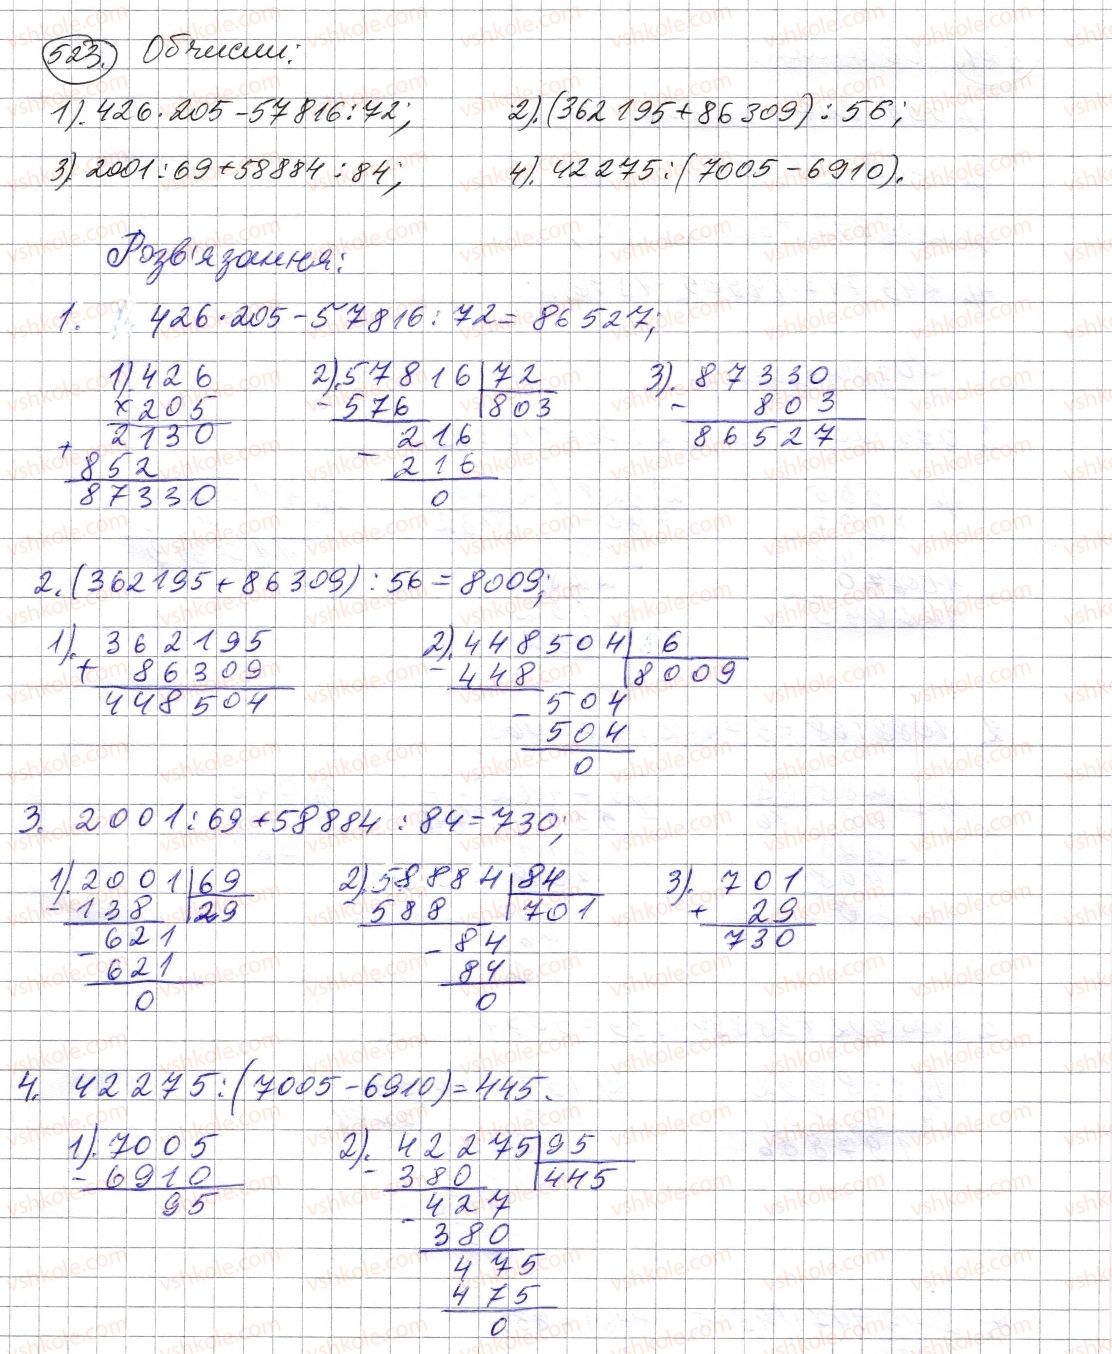 523. Обчисли:
1). 426·205-57816:72;
2). (362195+86309):56;
3). 2001:69+58884:84;
4). 42275:(7005-6910).
Розв'язання:
1. 426·205-57816:72=86527;
1). 426
×205
+ 2130
852
87330
2). 57816 | 72
- 576 | 803
- 216
216
0
3). 87330
- 803
86527
2. (362195+86309):56=8009;
1). 362195
+ 86309
448504
2). 448504 | 6
- 448 | 8009
- 504
504
0
3. 2001:69+58884:84=730;
1). 2001 | 69
- 138 | 29
- 621
621
0
2). 58884 | 84
- 588 | 701
- 84
84
0
3). 701
+ 29
730
4. 42275:(7005-6910)=445.
1). 7005
- 6910
95
2). 42275 | 95
- 380 | 445
- 427
380
475
475
0